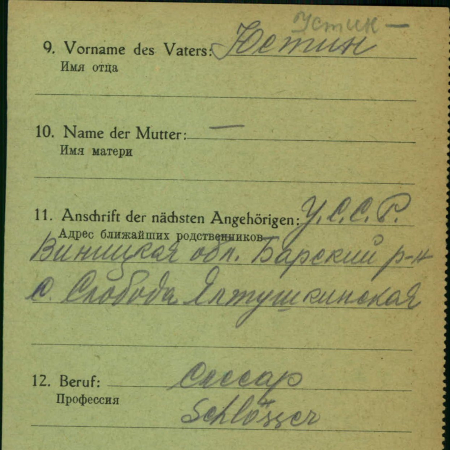 Устик —
9. Vorname des Vaters: Юстин
Имя отца
10. Name der Mutter: —
Имя матери
11. Anschrift der nächsten Angehörigen: У.С.С.Р.
Адрес ближайших родственников
Виницкая обл. Барский р-н
с. Слобода Ялтушкинская
12. Beruf: Слесар
Профессия
Schlösser